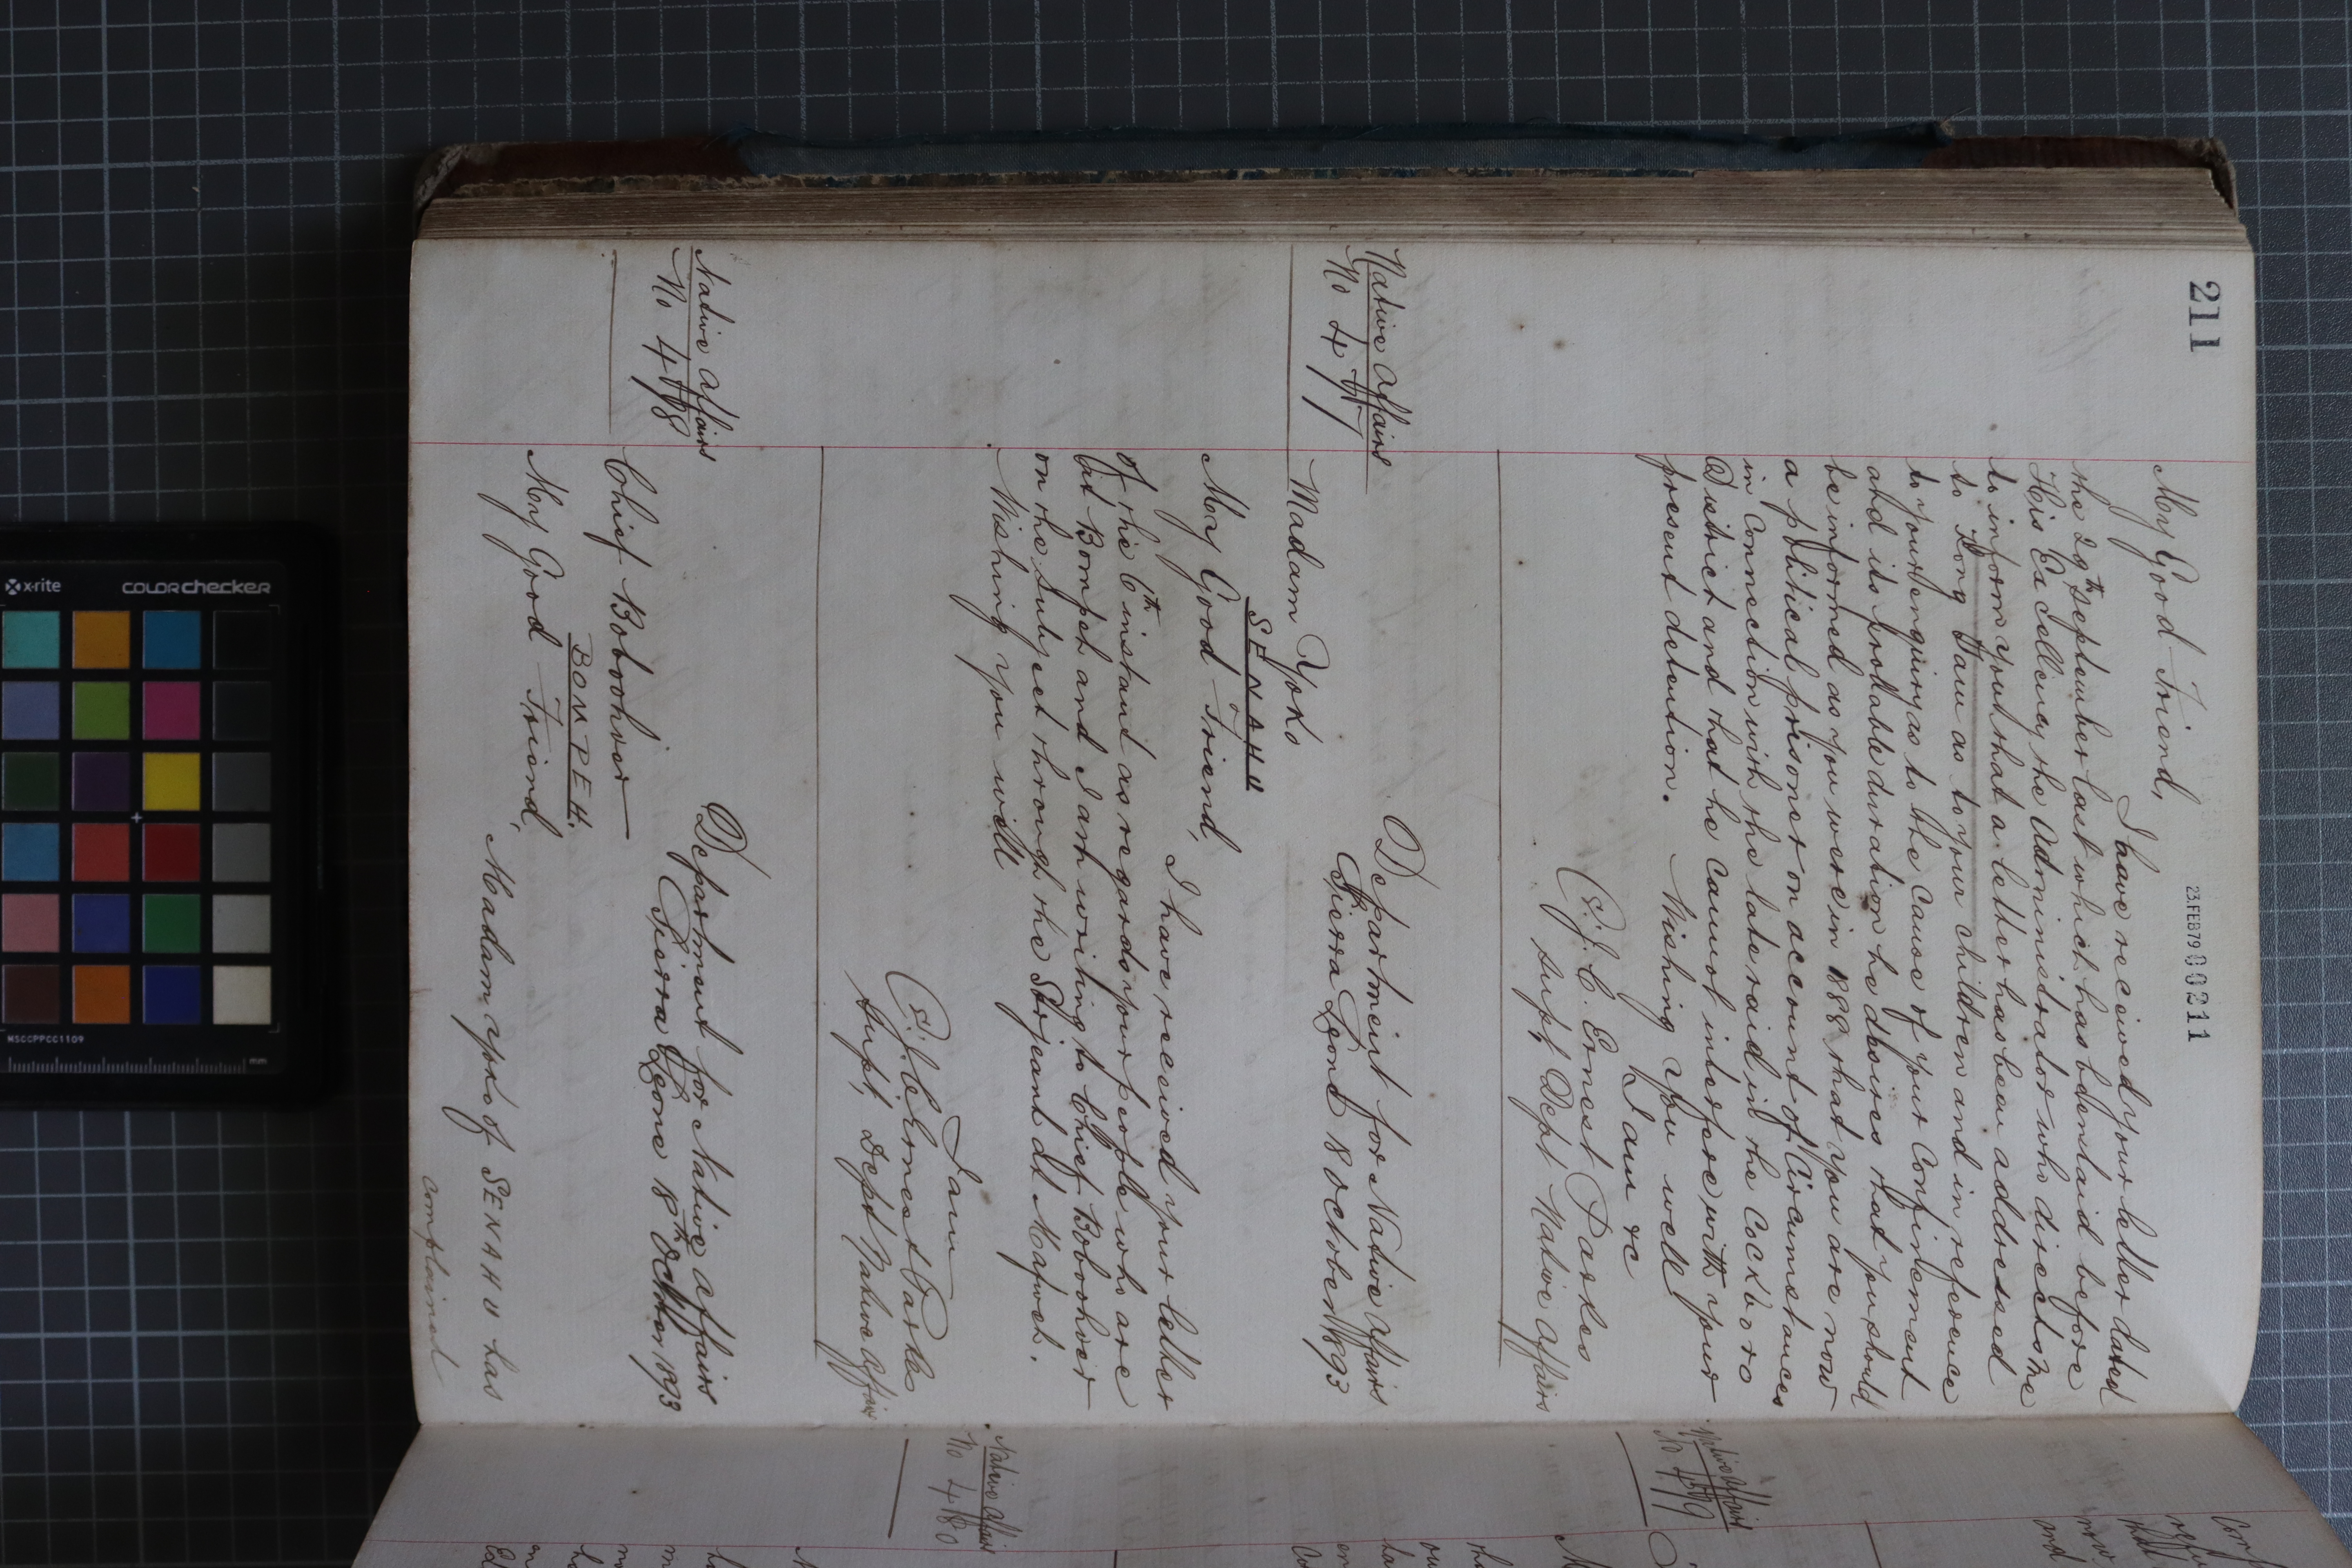 211
23.FEB79 000211
My Good Friend,
I have received your letter dated
the 29th September last which has been laid before
His Excellency the Administrator who directs me
to inform you that a letter has been addressed
to Bong as to your children and in reference
to your enquiry as to the cause of your confinement
and its probable duration he desires that you should
be informed as you were in 1888 that you are now
a political prisoner on account of circumstances
in connection with the late raid in the Cockboro
District and that he cannot interfere with your
present detention. Wishing you well
I am &c
J. C. Ernest Parkes
Supt Dept Native Affairs
Native Affairs
No
Department for Native Affairs
Sierra Leone 18 October 1893
Madam Yoko
SENAHU
My Good Friend,
I have received your letter
of the 6th instant as regards your people who are
at Bompeh and I am writing to Chief Bobookrie
on the subject through the Serjeant at Mafweh.
Wishing you well
I am
J. C. Ernest Parkes
Supt, Dept Native Affairs
Native Affairs
No
Department for Native Affairs
Sierra Leone 18th October 1893
Chief
BOMPEH.
My Good Friend,
Madam Yoko of SENAHU has
complained
Native Affairs
No
Native Affairs
No 480
x-rite
COLORchecker
MSCCPPCC1109
mm